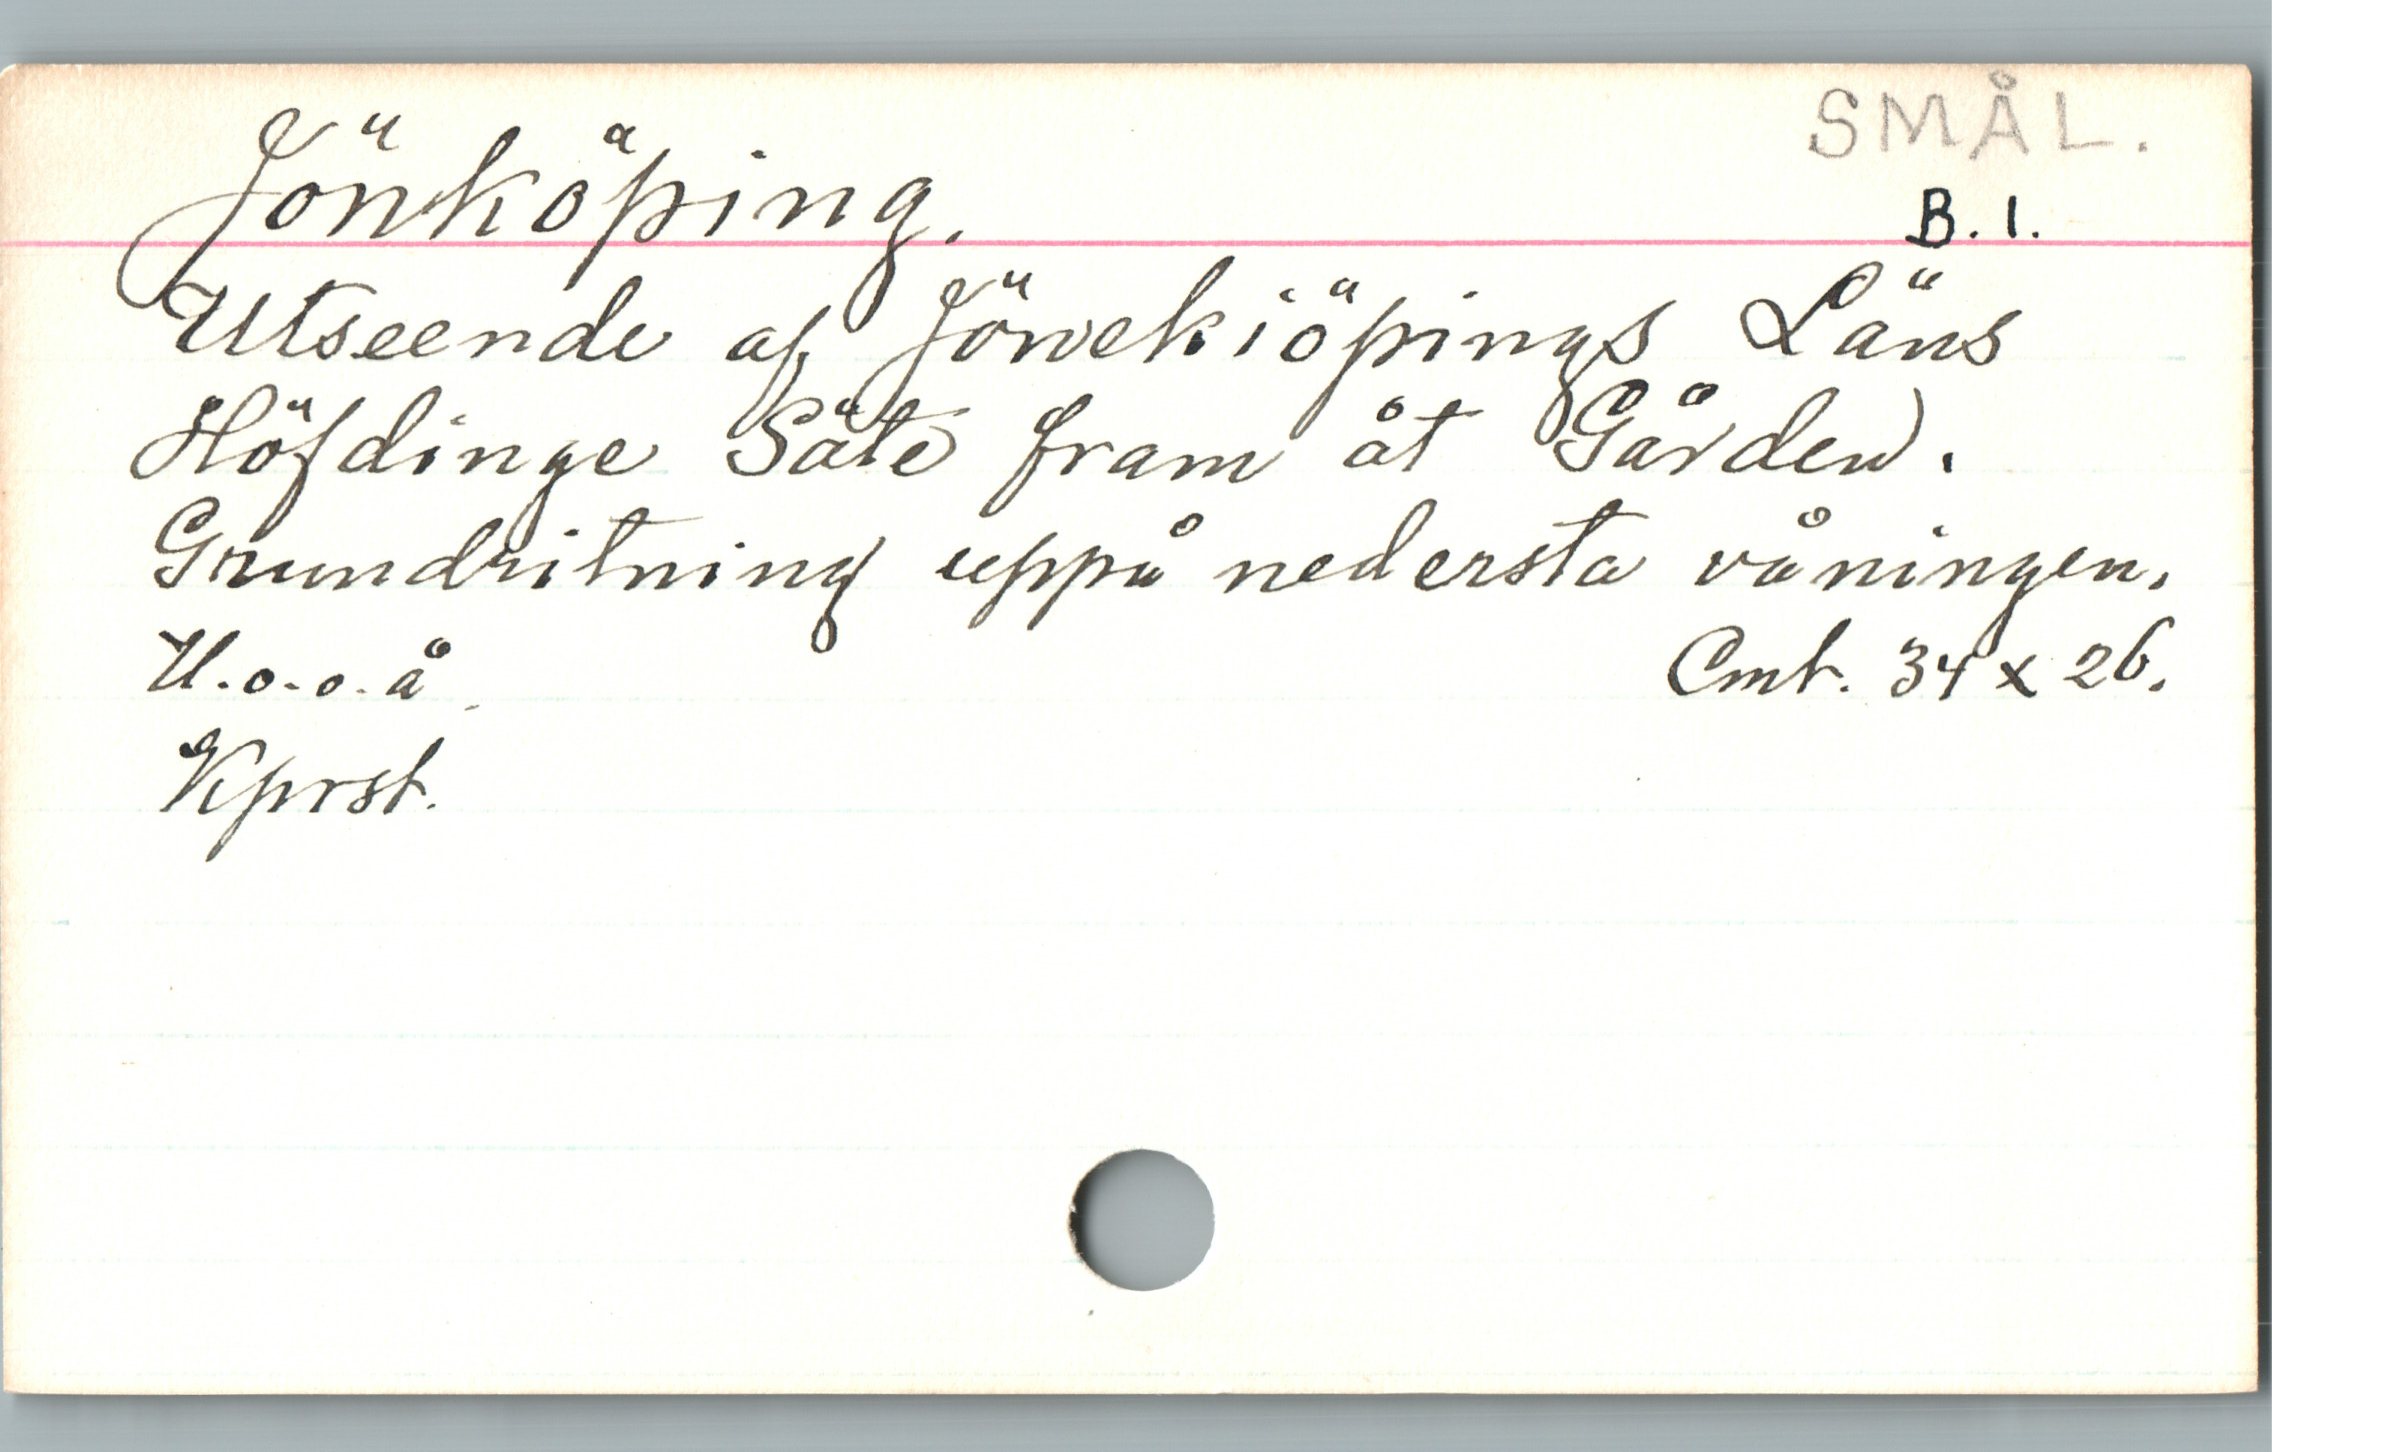 SMÅL.
Jönköping.
B. 1.
Utseende af Jönekiöpings Läns
Höfdinge Säte fram åt Gården.
Grundritning uppå nedersta våningen.
U.o.o.å.
Cmt. 34 x 26.
Kprst.